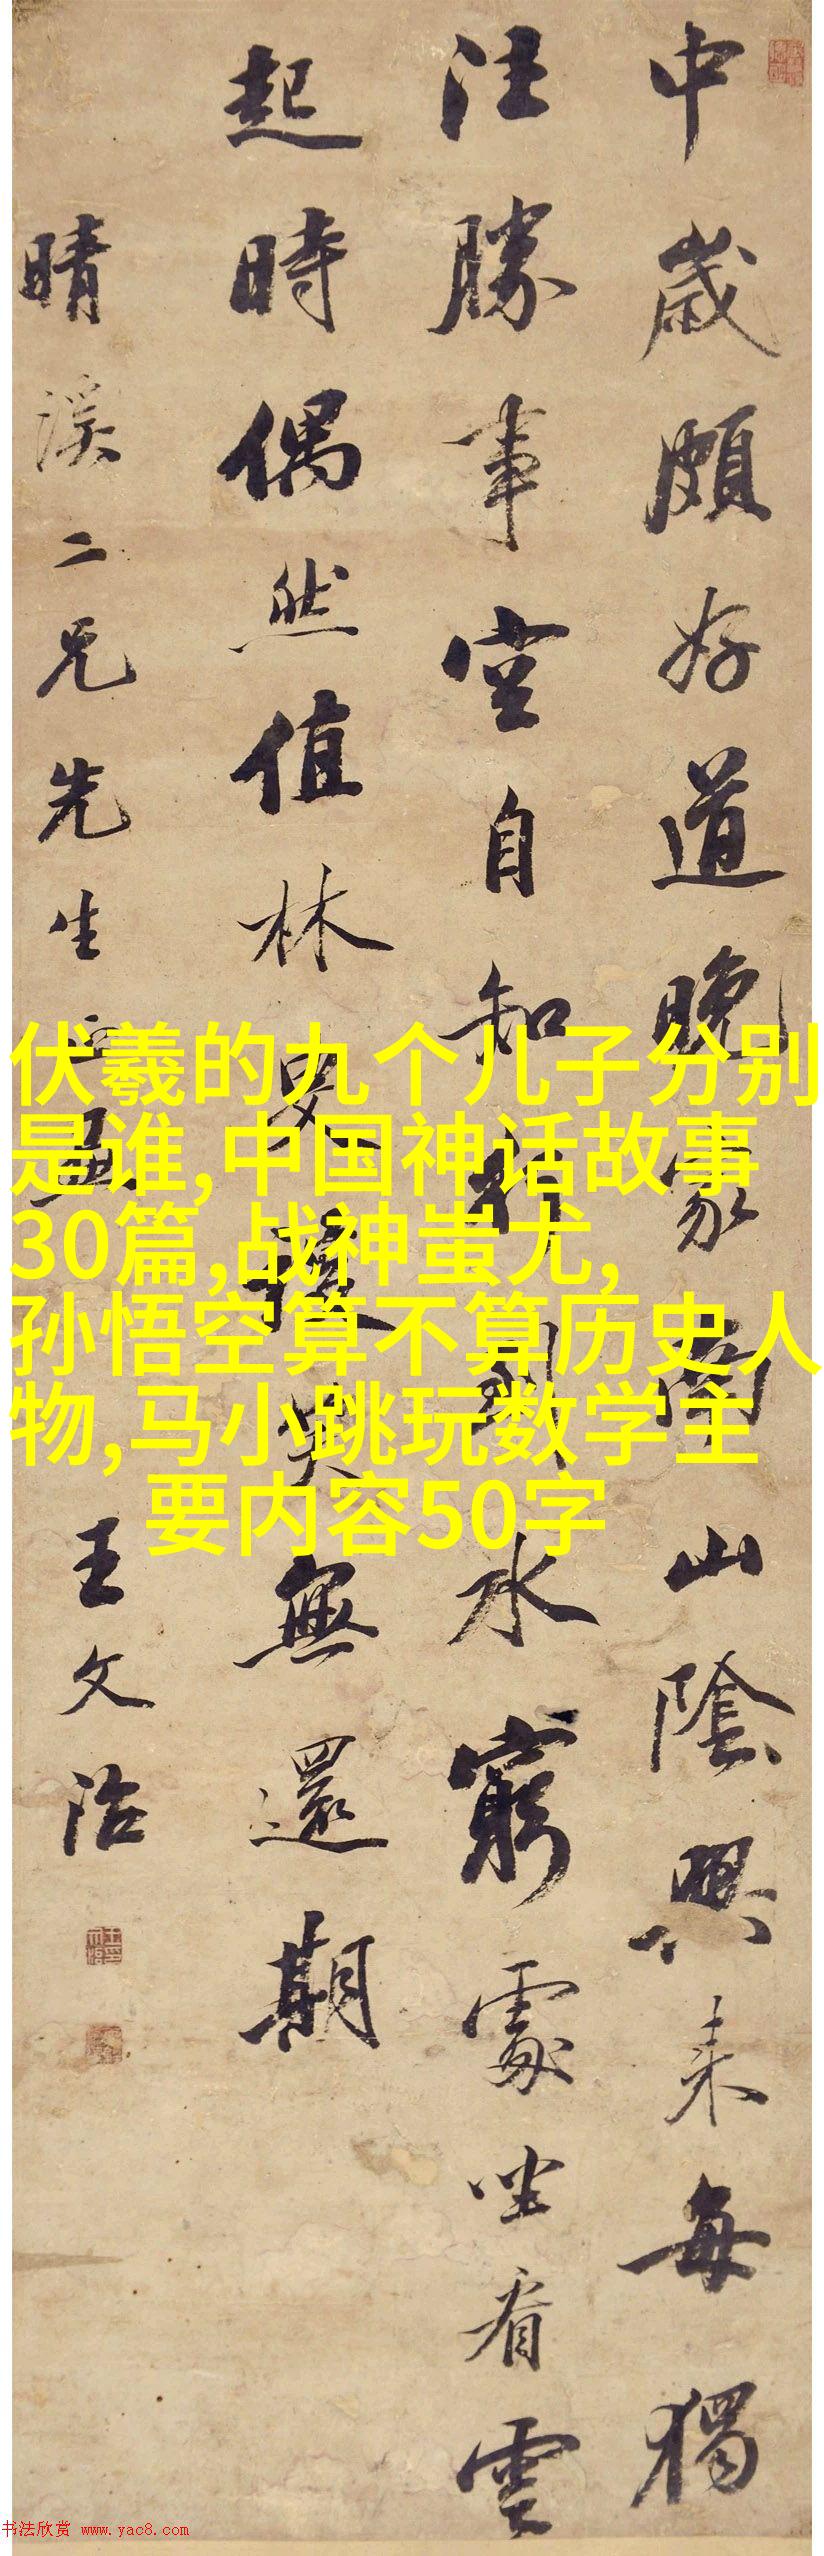 中歲頗好道晚家南山陲興来每獨
往勝事空自知行到水窮處坐看雲
起時偶然值林叟談笑無還期
晴溪二兄先生
王文治
伏羲的九个儿子分别
是谁,中国神话故事
30篇,战神蚩尤,
孙悟空算不算历史人
物,马小跳玩数学主
要内容50字
书法欣赏 www.yac8.com